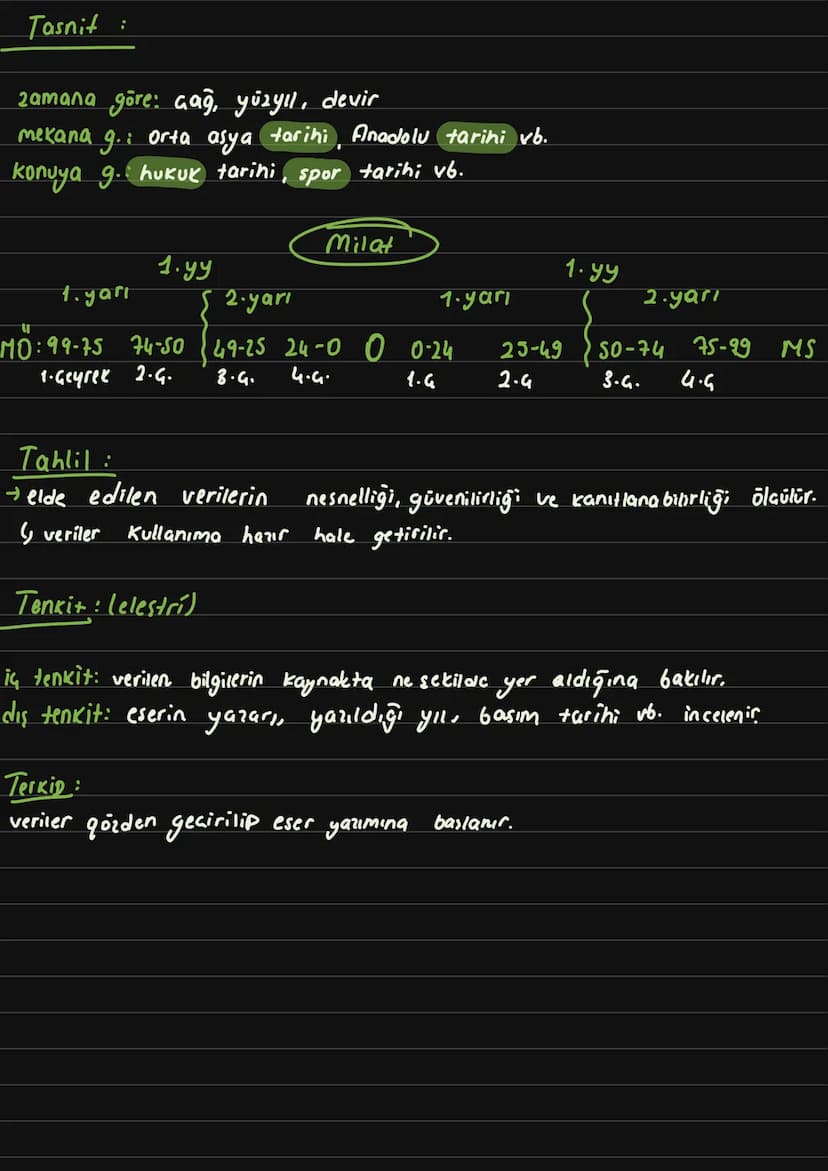 Tasnif :
zamana göre: çağ, yüzyıl, devir
mekana g.: orta asya tarihi, Anadolu tarihi vb.
konuya g.: hukuk tarihi, spor tarihi vb.
Milat
1.yy 1.yy
1.yarı 2.yarı 1.yarı 2.yarı
MÖ: 99-75 74-50 49-25 24-0 0 0-24 25-49 50-74 75-99 MS
1.çeyrek 2.ç. 3.ç. 4.ç. 1.ç 2.ç 3.ç. 4.ç
Tahlil :
→ elde edilen verilerin nesnelliği, güvenilirliği ve kanıtlanabilirliği ölçülür.
↳ veriler kullanıma hazır hale getirilir.
Tenkit : (elestri)
iç tenkit: verilen bilgilerin kaynakta ne şekilde yer aldığına bakılır.
dış tenkit: eserin yazarı, yazıldığı yıl, basım tarihi vb. incelenir
Terkip :
veriler gözden geçirilip eser yazımına başlanır.